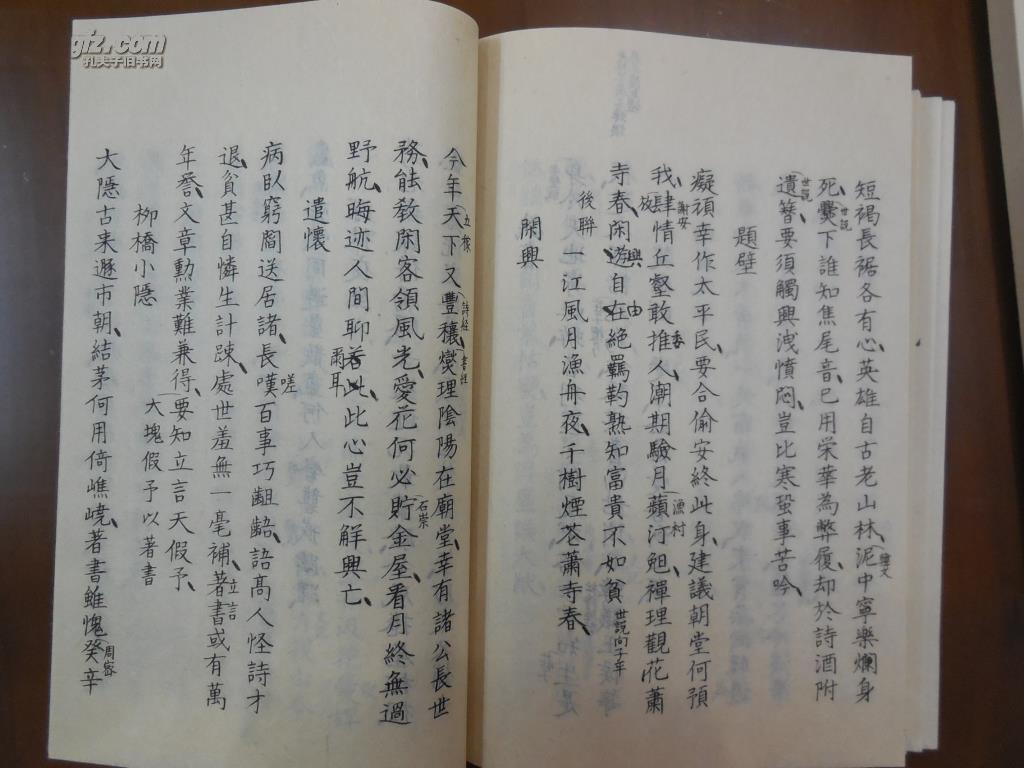 短褐長裾各有心英雄自古老山林泥中寧樂爛身
死爨下誰知焦尾音已用栄華為弊履却於詩酒附
遺簪要須觸興洩憤悶豈比寒蛩事苦吟
題壁
癡頑幸作太平民要合偷安終此身建議朝堂何預
我肆情丘壑敢推人潮期驗月蘋汀舠禪理觀花蕭
寺春閑遊自在絕羈靮熟知富貴不如貧
後聯
一江風月漁舟夜千樹煙花蕭寺春
閑興
今年天下又豐穰爕理陰陽在廟堂幸有諸公長世
務能教閑客領風光愛花何必貯金屋看月終無過
野航晦迹人間聊此心豈不解興亡
爾耳
遣懷
病臥窮閻送居諸長嘆百事巧齟齬語高人怪詩才
退貧甚自憐生計踈處世羞無一毫補著書或有萬
年譽文章勳業難兼得要知立言天假予
大塊假予以著書
柳橋小隱
大隱古来遯市朝結茅何用倚嶕嶢著書雖愧癸辛
世説
世説
莊文
謝安
放
興
由
委
漁村
世説向子平
立稼
詩經
書經
石崇
嗟
立言
周密
giz.com
孔夫子旧书网